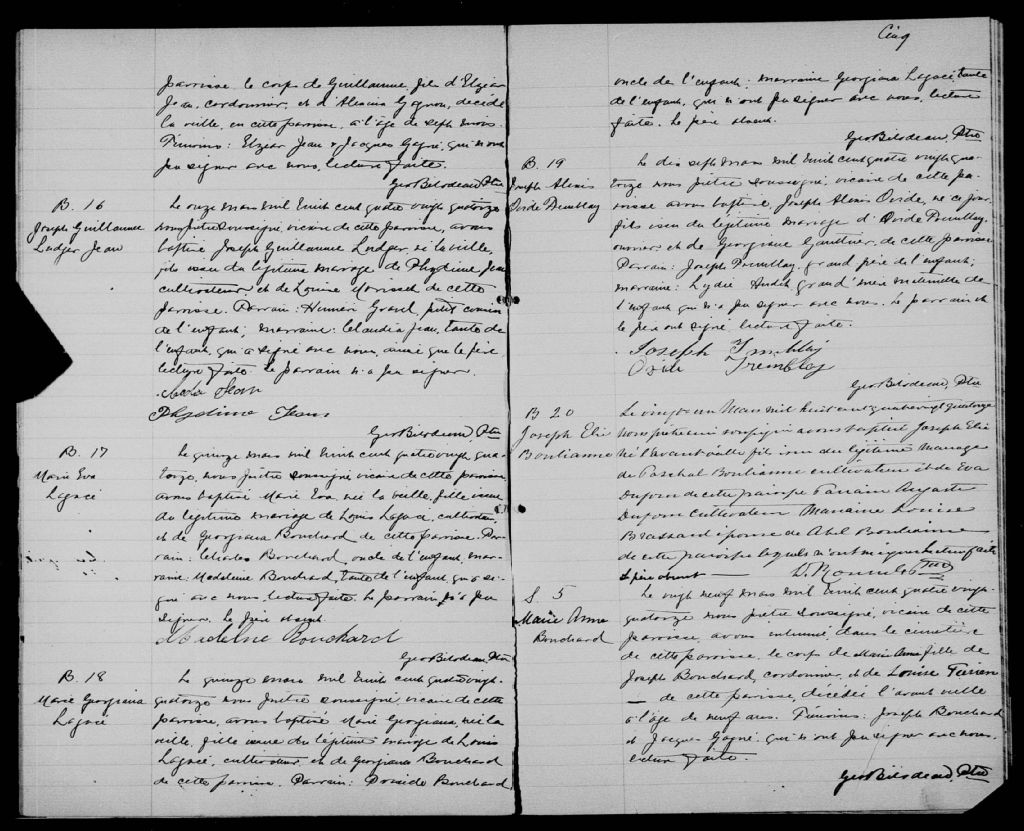 parroisse le corps de Guillaume, fils d'Elzéar
Jean, cordonnier, et d'Alexina Gagnon, décédé
la veille, en cette paroisse, à l'âge de sept mois.
Témoins: Elzéar Jean & Jacques Gagné, qui n'ont
pu signer avec nous, lecture faite.
Geo Bilodeau, Ptre
B. 16
Joseph Guillaume
Ludger Jean
Le onze mars mil huit cent quatre vingt quatorze
nous prêtre soussigné, vicaire de cette paroisse, avons
baptisé Joseph Guillaume Ludger né la veille,
fils issu du légitime mariage de Phydime Jean
cultivateur, et de Louise Morisset de cette
paroisse. Parrain: Henri Gravel, petit cousin
de l'enfant; marraine: Claudia Jean, tante de
l'enfant, qui a signé avec nous, ainsi que le père,
lecture faite. Le parrain n'a pu signer.
Jean
Phydime Jean
Geo Bilodeau, Ptre
B. 17
Marie Eva
Lagacé
Le quinze mars mil huit cent quatre vingt qua-
torze, nous prêtre soussigné vicaire de cette paroisse
avons baptisé Marie Eva, née la veille, fille issue
du légitime mariage de Louis Lagacé, cultivateur,
et de Georgiana Bouchard de cette paroisse. Par-
rain: Charles Bouchard, oncle de l'enfant, mar-
raine: Madeleine Bouchard, tante de l'enfant, qui a si-
gné avec nous, lecture faite. Le parrain n'a pu
signer. Le père absent.
Madeleine Bouchard
Geo Bilodeau, Ptre
B. 18
Marie Georgiana
Lagacé
Le quinze mars mil huit cent quatre vingt-
quatorze nous prêtre soussigné, vicaire de cette
paroisse, avons baptisé Marie Georgiana, née la
veille, fille issue du légitime mariage de Louis
Lagacé, cultivateur, et de Georgiana Bouchard
de cette paroisse. Parrain: Bouchard
Cinq
oncle de l'enfant; marraine Georgiana Lagacé, tante
de l'enfant, qui n'ont pu signer avec nous, lecture
faite. Le père absent.
Geo Bilodeau, Ptre
B. 19
Joseph Alexis
Ovide Tremblay
Le dix sept mars mil huit cent quatre vingt qua-
torze nous prêtre soussigné, vicaire de cette pa-
roisse avons baptisé, Joseph Alexis Ovide, né ce jour,
fils issu du légitime mariage d'Ovide Tremblay,
ouvrier et de Georgiana Gauthier, de cette paroisse
Parrain: Joseph Tremblay, grand père de l'enfant;
marraine: Lydie Audit grand'mère maternelle de
l'enfant qui n'a pu signer avec nous. Le parrain et
le père ont signé, lecture faite.
Joseph Tremblay
Ovide Tremblay
Geo Bilodeau, Ptre
B 20
Joseph Elie
Boulianne
Le vingt un Mars mil huit cent quatre vingt quatorze
Nous prêtre soussigné avons baptisé Joseph Elie
né l'avant veille fils issu du légitime mariage
de Paschal Boulianne cultivateur et de Eva
Dufour de cette paroisse Parrain Auguste
Dufour cultivateur Marraine Louise
Brassard épouse de Abel Boulianne
de cette paroisse lesquels n'ont su signer Lecture faite
Le père absent — Ptre
S. 5
Marie Anne
Bouchard
Le vingt neuf mars mil huit cent quatre vingt-
quatorze nous prêtre soussigné, vicaire de cette
paroisse, avons inhumé dans le cimetière
de cette paroisse, le corps de Marie Anne fille de
Joseph Bouchard, cordonnier, et de Louise
— de cette paroisse, décédée l'avant veille
à l'âge de neuf ans. Témoins: Joseph Bouchard
et Jacques Gagné, qui n'ont pu signer avec nous.
lecture faite.
Geo Bilodeau, Ptre